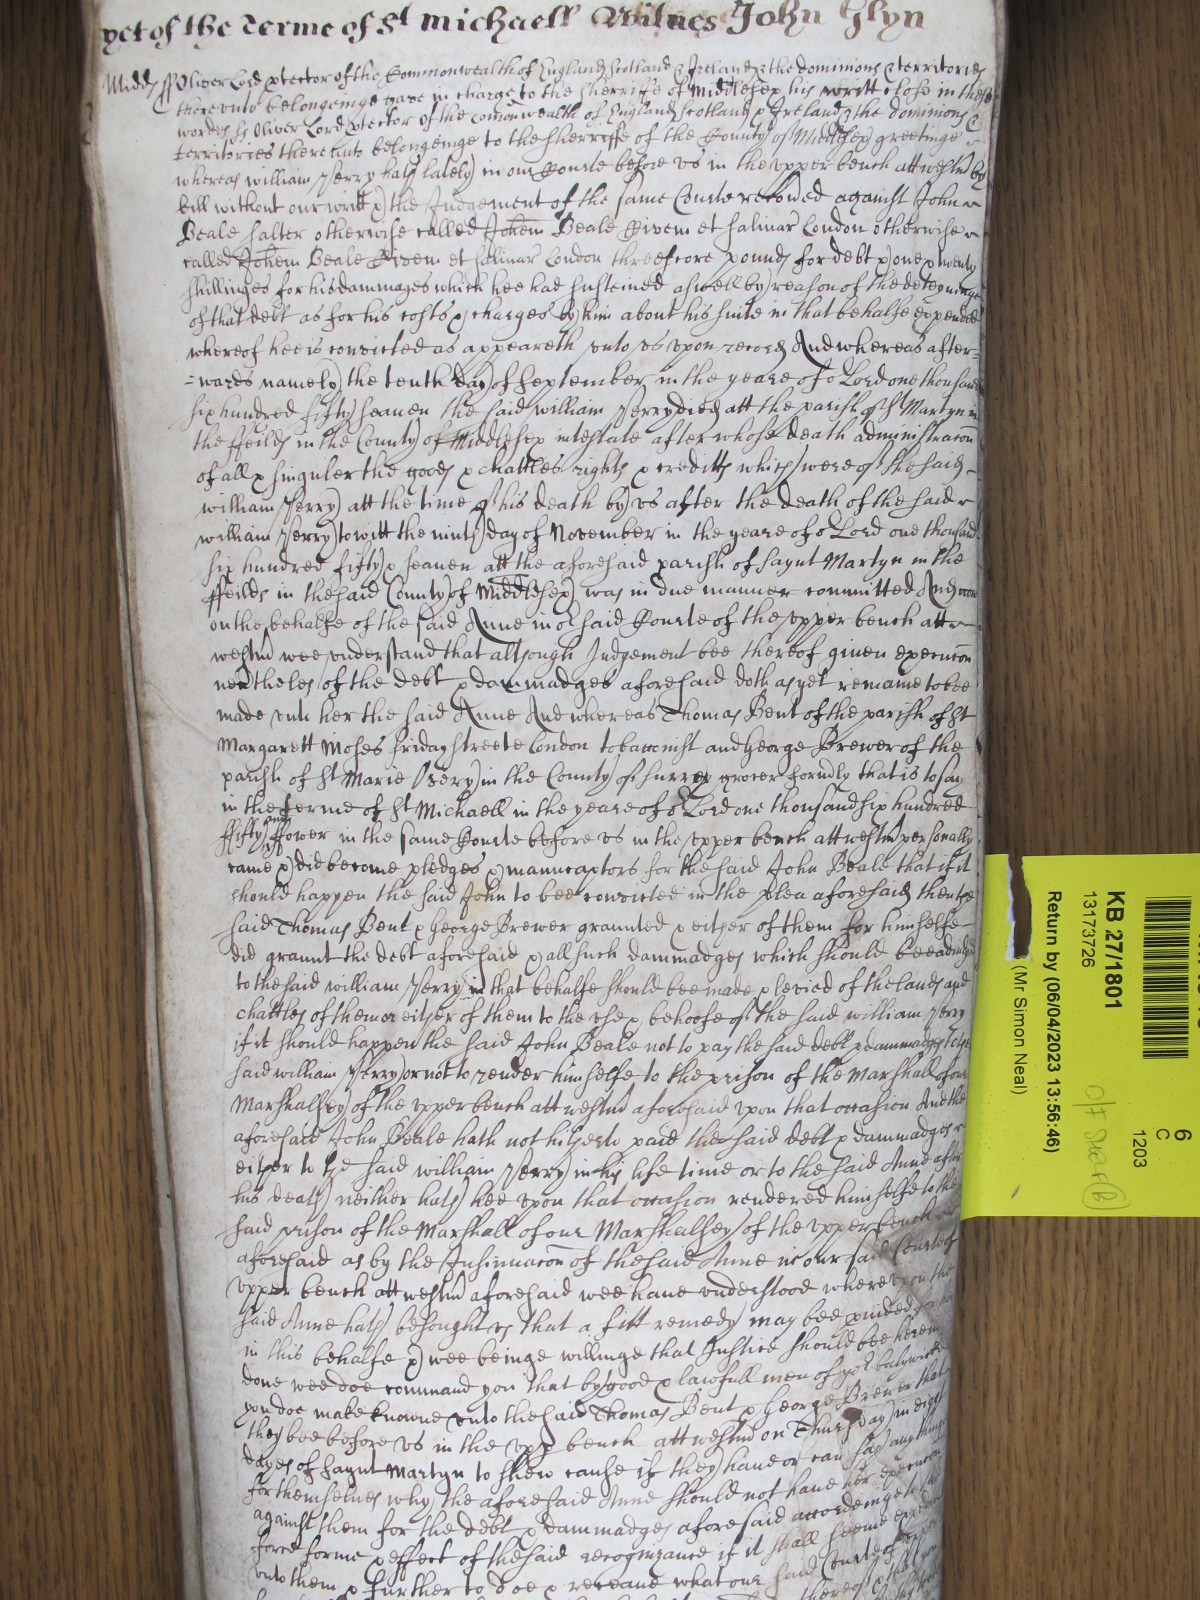 yet of the Terme of St Michaell Witnes John Glyn
Midd ss Oliver Lord ptector of the Commonwealth of England Scotland & Ireland & the dominions & territories
thereunto belongeinge gave in charge to the Sherriffe of Middlesex his writt close in these
wordes ss Oliver Lord ptector of the Comonwealth of England Scotland & Ireland & the dominions &
territories thereunto belongeinge to the Sherriffe of the County of Middlesex greetinge
whereas William Serry hath lately in our Courte before us in the upper bench att Westm by
bill without our writt & the Judgement of the same Courte recoued against John
Beale Salter otherwise called Johem Beale Civem et Salinar London otherwise
called Johem Beale Civem et Salinar London threescore pounds for debt & one & twenty
shillinges for his dammages which hee had susteined aswell by reason of the deteyninge
of that debt as for his costs & charges by him about his suite in that behalfe expended
whereof hee is convicted as appeareth unto us upon record And whereas after=
=wards namely the tenth day of September in the yeare of o Lord one thousand
six hundred fifty seaven the said William Serry died att the parish of St Martyn in
the ffeilds in the County of Middlesex intestate after whose death administracon
of all & singuler the goods & chattles rights & creditts which were of the said
William Serry att the time of his death by us after the death of the said
William Serry to witt the ninth day of November in the yeare of o Lord one thousand
six hundred fifty & seaven att the aforesaid parish of Saynt Martyn in the
ffeilds in the said County of Middlesex was in due manner committed And now
on the behalfe of the said Anne in o said Courte of the upper bench att
Westm wee understand that although Judgement bee thereof given execucon
nevtheles of the debt & dammadges aforesaid doth as yet remaine to bee
made unto her the said Anne And whereas Thomas Bent of the parish of St
Margarett Moses Friday streete London tobacconist and George Brewer of the
parish of St Marie Overy in the County of Surrey grocer formly that is to say
in the terme of St Michaell in the yeare of o Lord one thousand six hundred
ffifty and ffower in the same Courte before us in the upper bench att Westm personally
came & did become pledges & manucaptors for the said John Beale that if it
should happen the said John to bee convicted in the plea aforesaid then the
said Thomas Bent & George Brewer graunted & either of them for himselfe
did graunt the debt aforesaid & all such dammadges which should bee adiudged
to the said William Serry in that behalfe should bee made & levied of the lands and
chattles of them or either of them to the use & behoofe of the said William Serry
if it should happen the said John Beale not to pay the said debt & dammadges to the
said William Serry or not to render himselfe to the prison of the Marshall of our
Marshalsey of the upper bench att Westm aforesaid upon that occasion And the
aforesaid John Beale hath not hitherto paid the said debt & dammadges
either to the said William Serry in his life time or to the said Anne after
his death neither hath hee upon that occasion rendered himselfe to the
said prison of the Marshall of our Marshalsey of the upper bench
aforesaid as by the Insinuacon of the said Anne in our said Courte of
upper bench att Westm aforesaid wee have understood whereupon the
said Anne hath besought us that a fitt remedy may bee pvided for her
in this behalfe & wee beinge willinge that Justice should bee herein
done wee doe command you that by good & lawfull men of yor baliwicke
you doe make knowne unto the said Thomas Bent & George Brewer that
they bee before us in the upp bench att Westm on Thursday in eight
dayes of Saynt Martyn to shew cause if they have or can say any thing
for themselves why the aforesaid Anne should not have her execucon
against them for the debt & dammadges aforesaid accordeinge to the
force forme & effect of the said recognizance if it shall seeme expedient
unto them & further to doe & receave what our said Courte of upper
thereof & that
KB 27/1801
13173726
Return by (06/04/2023 13:56:46)
(Mr Simon Neal)
6
C
1203